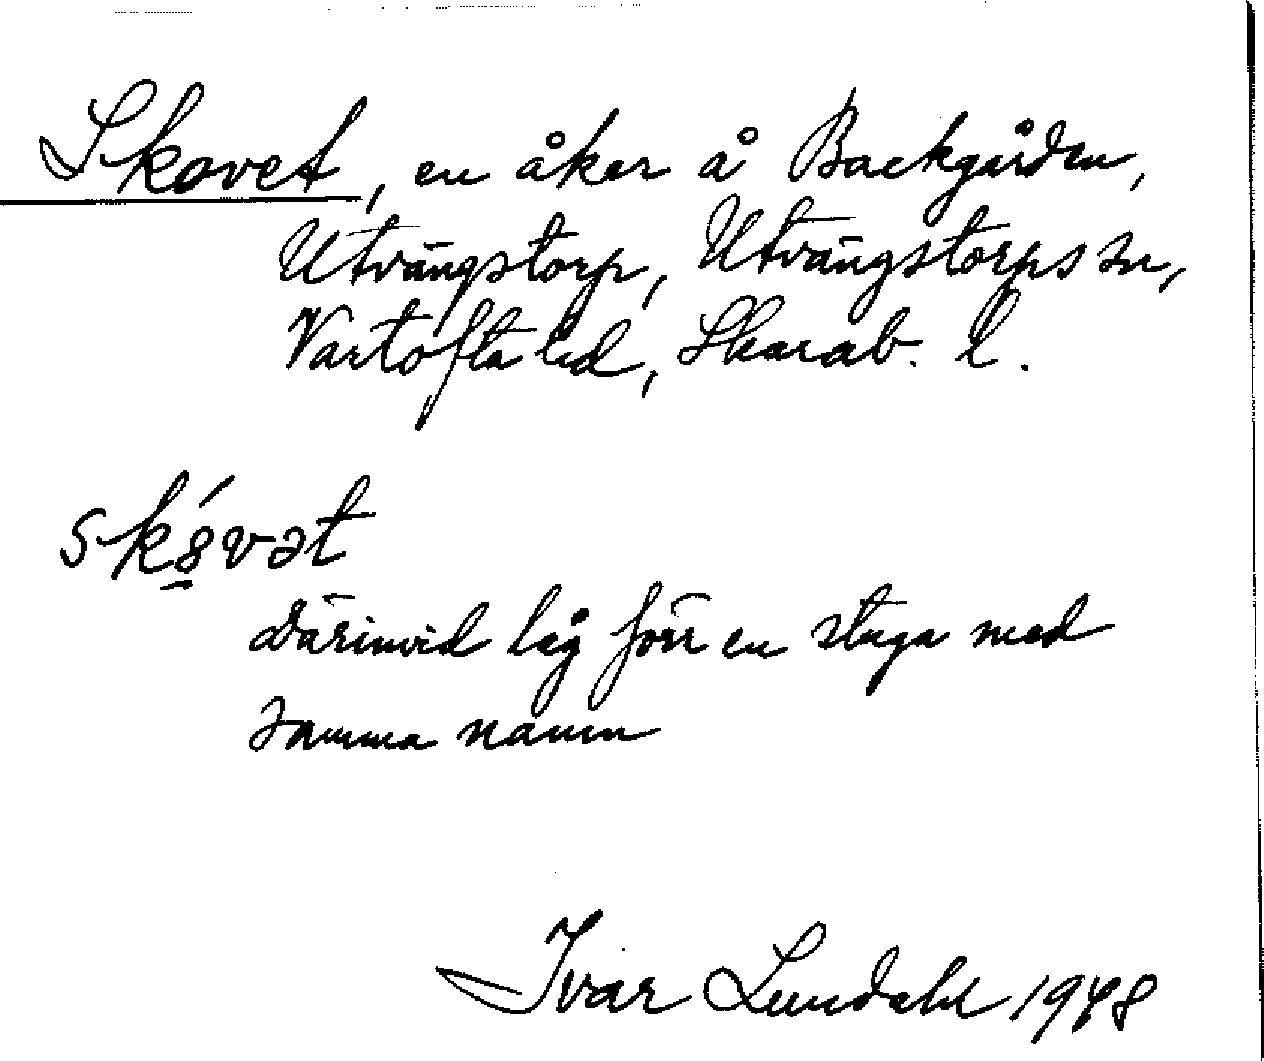 Skovet, en åker å Backgården,
Utvängstorp, Utvängstorps sn,
Vartofta hd, Skarab. l.
skȣ́vət
därinvid låg förr en stuga med
samma namn
Ivar Lundahl 1948